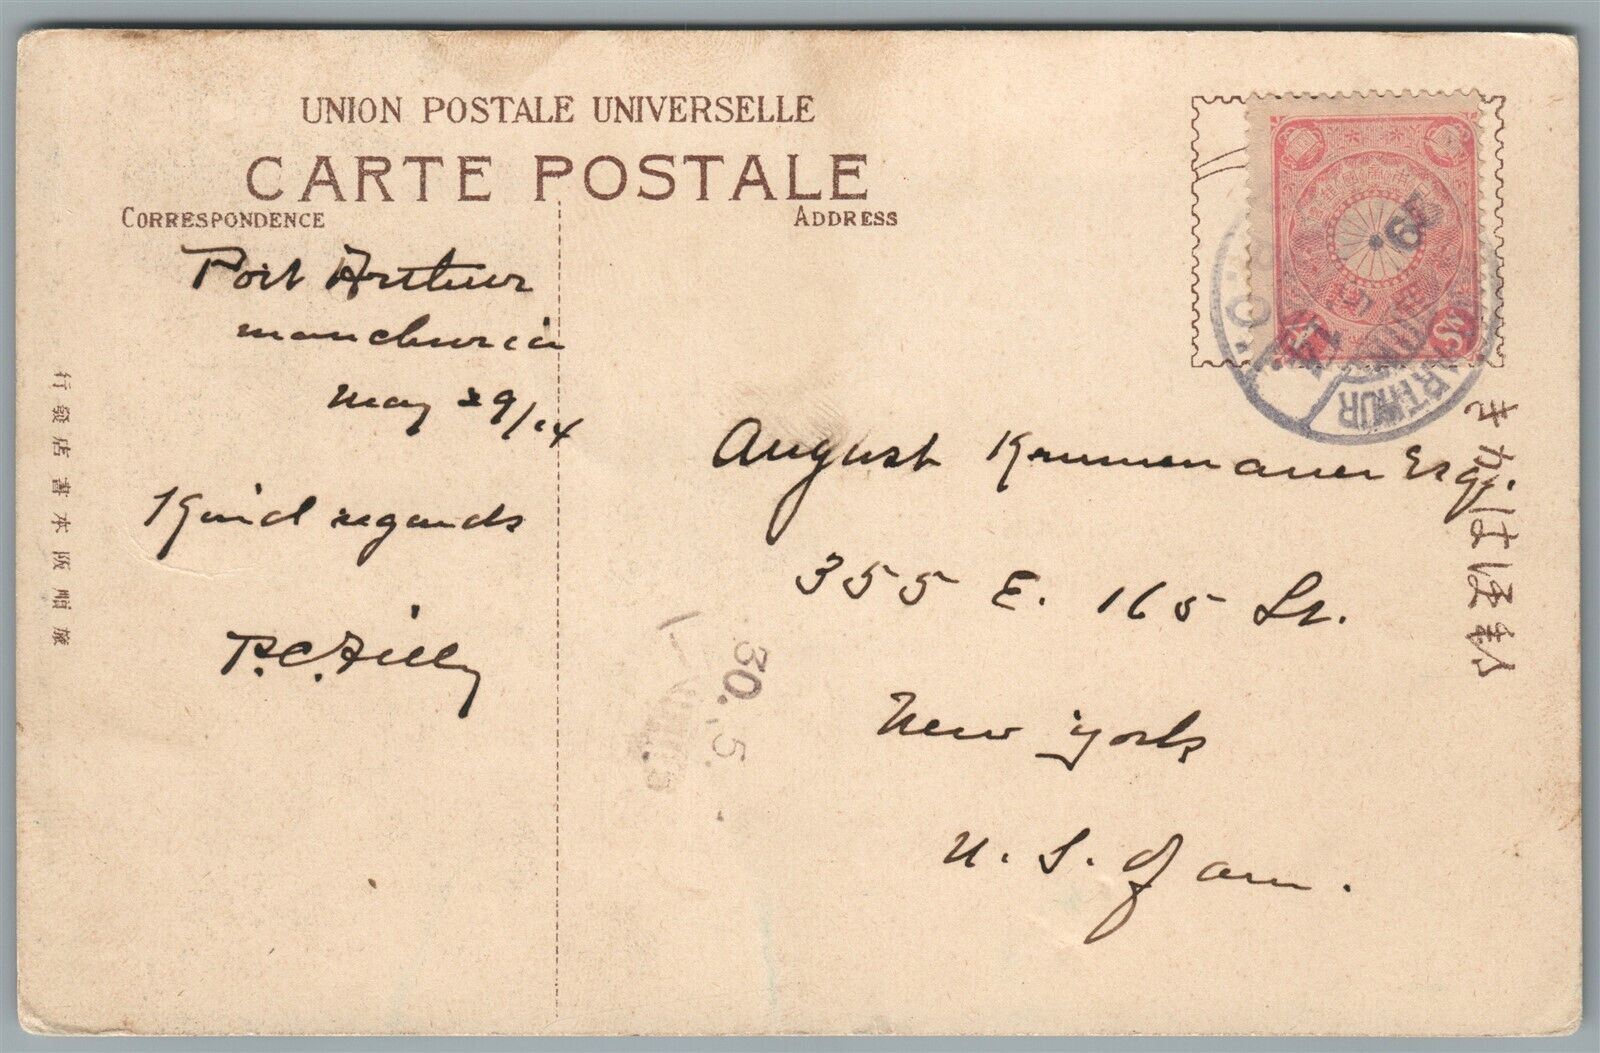 UNION POSTALE UNIVERSELLE
CARTE POSTALE
CORRESPONDENCE
ADDRESS
Port Arthur
manchuria
may 29/14
Kind regards
P.C.
August Esq.
355 E. 165 St.
New York
U. S. of am.
きかは便郵
行發店書本阪順旅
ARTHUR
30. 5.